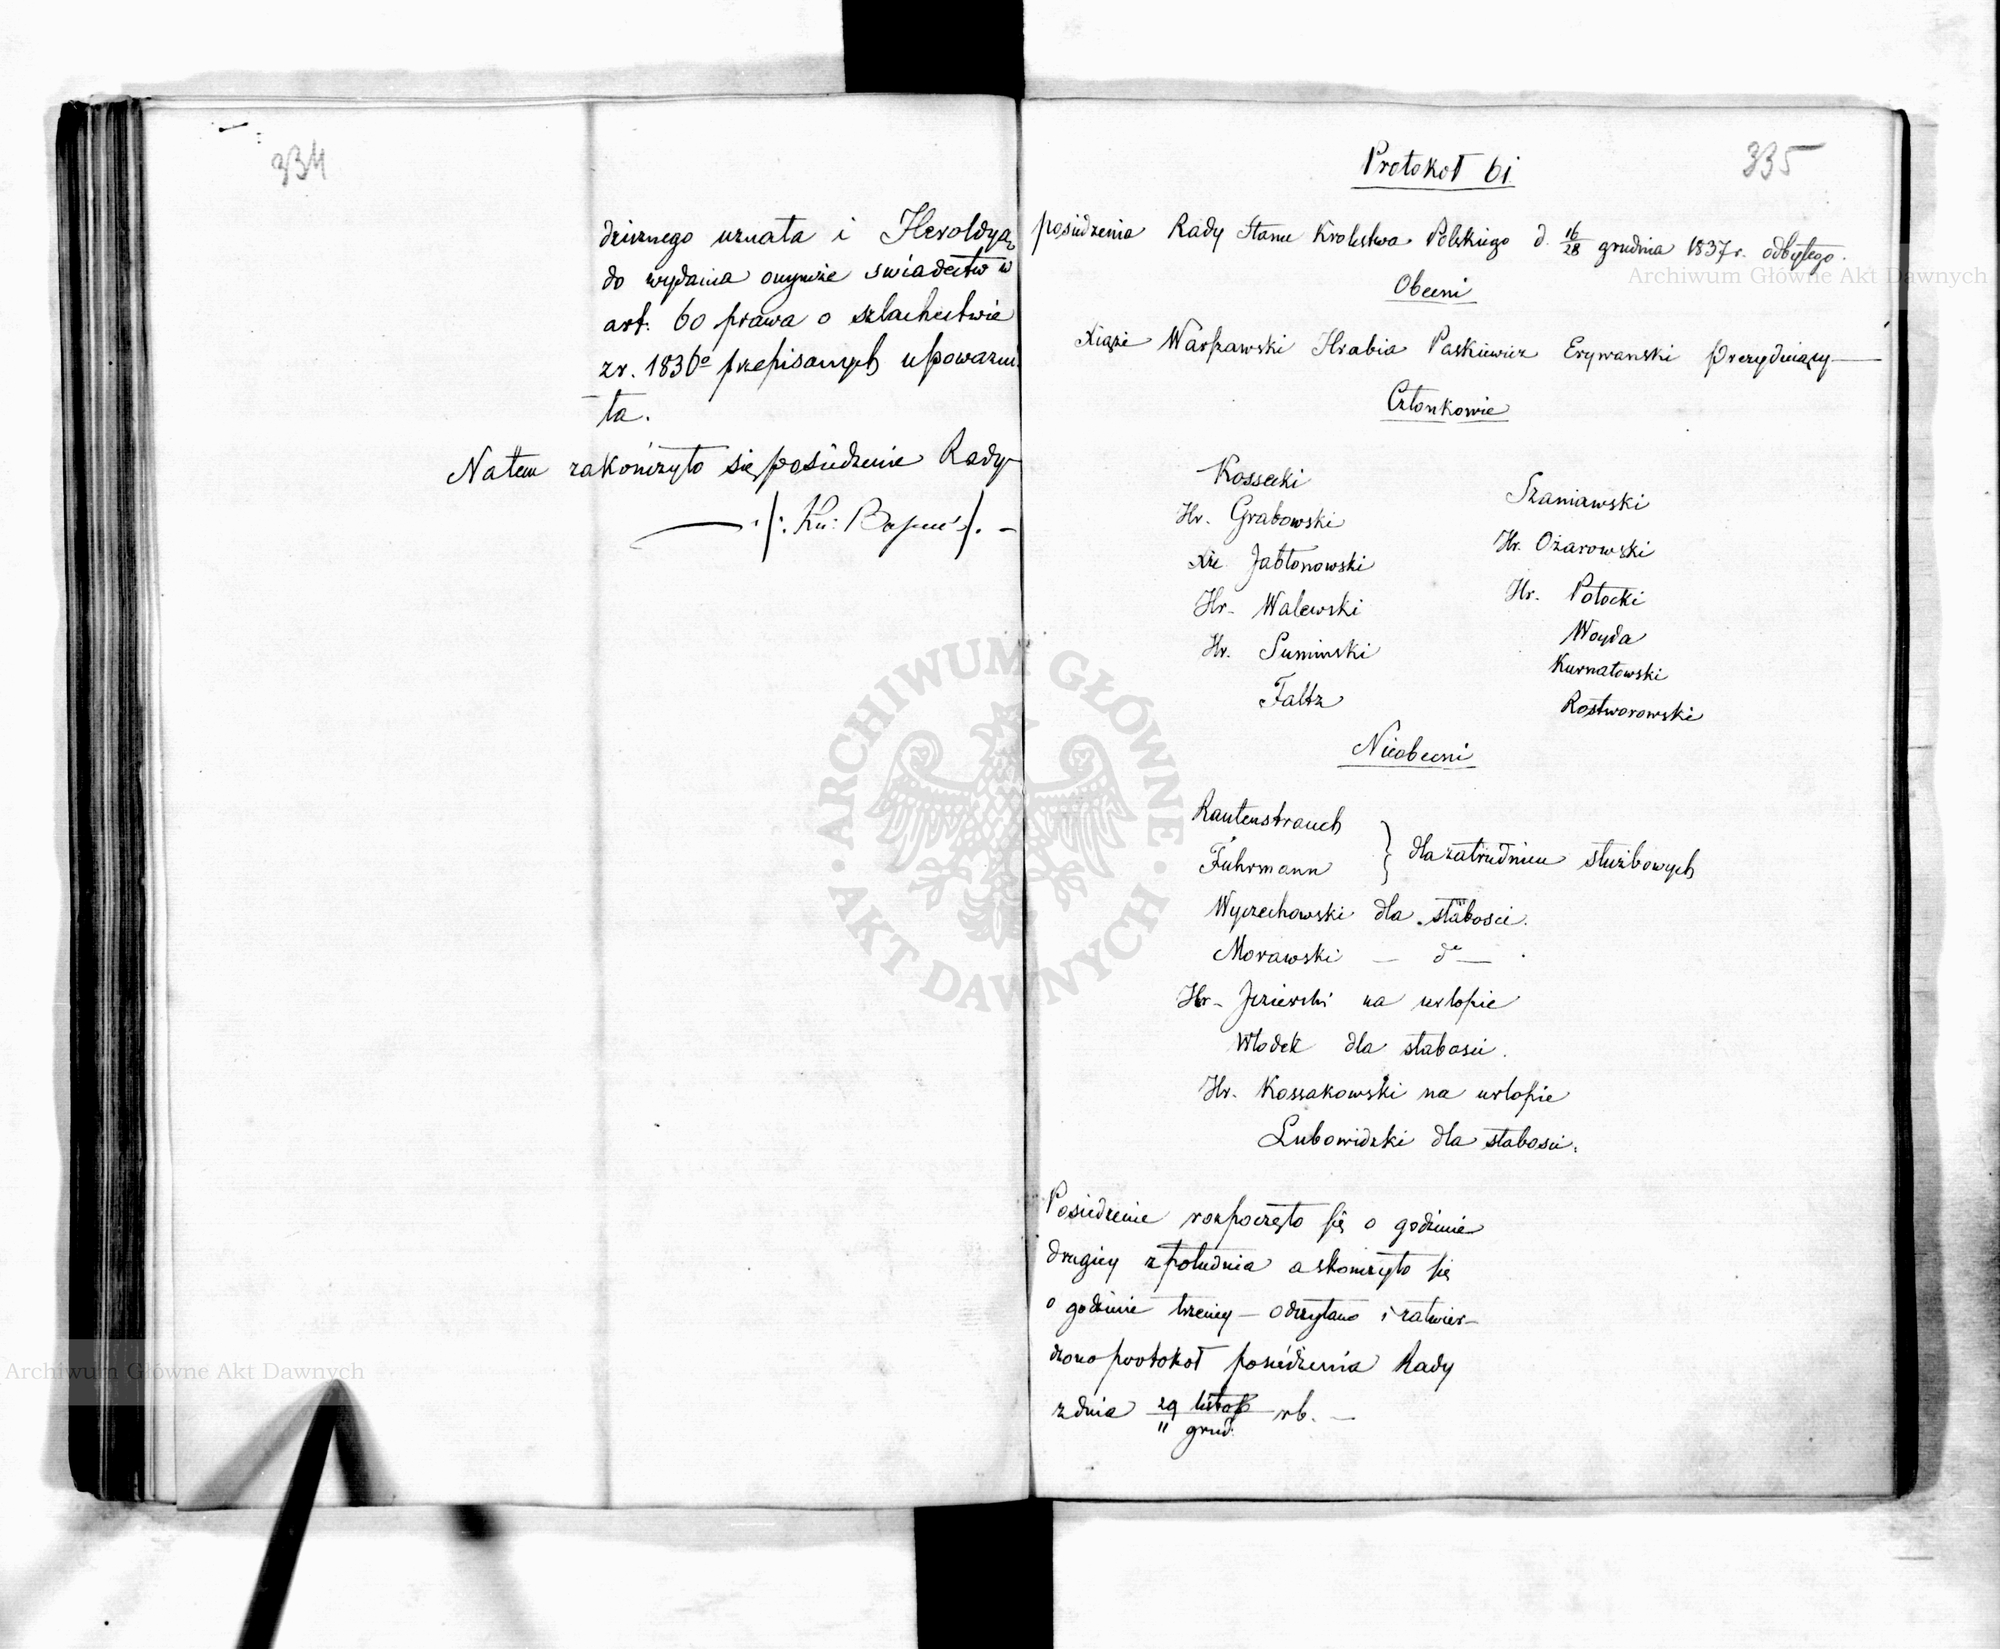 334
dzicznego uznała i Heroldyą
do wydania onymże swiadectw w
art: 60 prawa o szlachectwie
z r. 1836º przepisanych upoważni
ła.
Na tem zakończyło się posiedzenie Rady
335
Protokoł 61
posiedzenia Rady Stanu Krolestwa Polskiego d. 16/28 grudnia 1837 r. odbytego.
Obecni
Xiąże Warszawski Hrabia Paskiewicz Erywanski Prezydujący
Członkowie
Kossecki
Szaniawski
Hr. Grabowski
Hr. Ożarowski
Xże Jabłonowski
Hr. Potocki
Hr. Walewski
Woyda
Hr. Suminski
Kurnatowski
Faltz
Rostworowski
Nieobecni
Rautenstrauch
Fuhrmann } dla zatrudnien służbowych
Wyczechowski dla słabosci.
Morawski — dº — .
Hr. Jezierski na urlopie
Włodek dla słabosci.
Hr. Kossakowski na urlopie
Lubowidzki dla słabosci.
Posiedzenie rozpoczęło się o godzinie
drugiey z południa a skończyło się
o godzinie trzeciey — odczytano i zatwier-
dzono protokoł posiedzenia Rady
z dnia 29 listop/11 grud. rb. —
Archiwum Główne Akt Dawnych
Archiwum Główne Akt Dawnych
ARCHIWUM GŁÓWNE AKT DAWNYCH